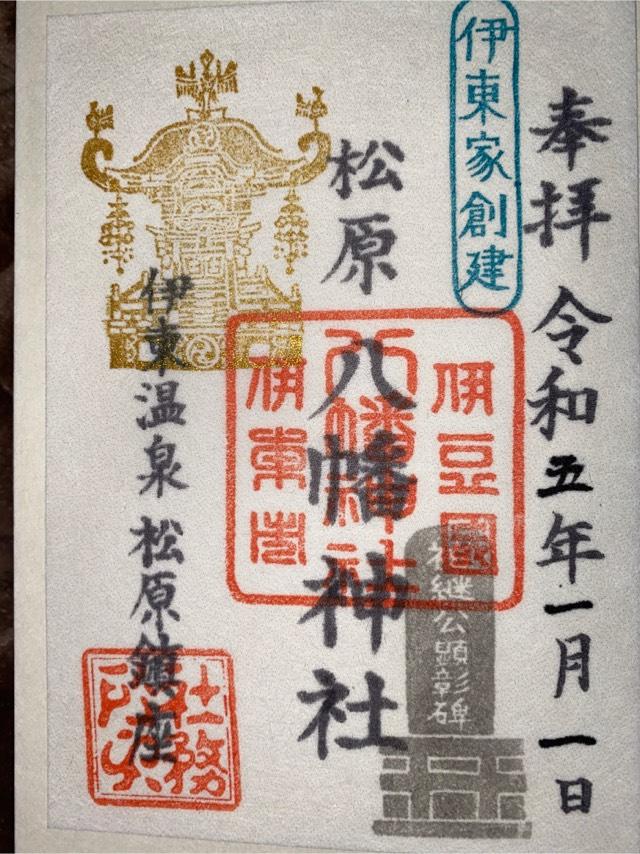 奉拝 令和五年一月一日
伊東家創建
松原八幡神社
伊豆國
八幡神社
伊東市
継公顕彰碑
伊東温泉 松原鎮座
社務